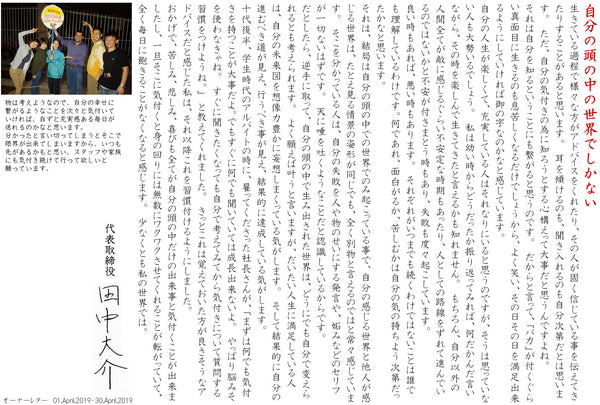 自分の頭の中の世界でしかない
生きている過程で様々な方がアドバイスをくれたり、その人が固く信じている事を伝えてき
たりすることがあると思います。耳を傾けるのも、聞き入れるのも自分次第だとは思いま
す。ただ、自分の気付きの為に知ろうとする心構えって大事だと思うんですよね。
それは自分を知るということにも繋がると思うのです。だからと言って、「バカ」が付くぐら
い真面目に生きるのも息苦しくなるだけでしょうから、よく笑い、その日その日を満足出来
るようにしていければ御の字なのかなと感じています。
自分の人生が楽しくて、充実している人はそれなりにいると思うのですが、そうは思っていな
い人も大勢いるでしょう。私は幼い時からどうだったか振り返ってみれば、何だかんだ言い
ながら、その時を楽しんで生きてきたと言えるかも知れません。もちろん、自分以外の
人間全てが敵に感じるぐらい不安定な時期もあったり、人としての路線をずれて進んでい
るのではないかと不安が付きまとう時もあり、失敗も度々起こしています。
良い時もあれば、悪い時もあります。それぞれがいつまでも続くわけではないことは誰で
も理解しているわけです。何であれ、面白がるか、苦しむかは自分の気の持ちよう次第だっ
たかなと思います。
それは、結局は自分の頭の中での世界でのみ起こっている事で、自分の感じる世界と他人が感
じる世界は、たとえ見る情景の姿形が同じでも、全く別物と言えるのではと常々感じていま
す。そこを分かっている人は、自分の失敗を人や物のせいにする発言や、妬みなどのセリフ
が一切ないはずです。天に唾を吐くようなことだと認識しているからです。
だとしたら、逆手に取って、自分の頭の中で生み出された世界は、どうにでも自分で変えら
れるとも考えられます。よく願えば叶うと言いますが、だいたい人生に満足している人
は、自分の未来図を想像力豊かに妄想しまくっている気がします。そして結果的に自分の
進むべき道が見え、行うべき事が見え、結果的に達成している気がします。
十代後半、学生時代のアルバイトの時に、雇ってくださった社長さんが、「まずは何でも気付
きを持つことが大事だよ。でもすぐに何でも聞いていては成長出来ないよ。やっぱり脳みそ
を使わなきゃね。すぐに聞きたくなっても自分で考えてみてから気付きについて質問する
習慣をつけようね。」と教えてくれました。きっとこれは覚えておいた方が良さそうなア
ドバイスだと感じた私は、それ以降これを習慣付けるようにしました。
おかげで、苦しみ、悲しみ、喜びも全てが自分の頭の中だけの出来事と気付くことが出来ま
したし、一旦そこに気付くと身の回りには無数にワクワクさせてくれることが転がっていて、
全く毎日に飽きることがなくなると感じます。少なくとも私の世界では。
物は考えようなので、自分の幸せに
繋がるようなことを次々と気付いて
いければ、自ずと充実感ある毎日が
送れるのかなと思います。
ないものをないと言い切ってしまうとそこで
限界が出来てしまいますから、いつも
先があるかもと思い、スタッフや家族
にも気付き続けて行って欲しいと
願っています。
代表取締役
田中大介
オーナーレター 01.April,2019-30.April,2019